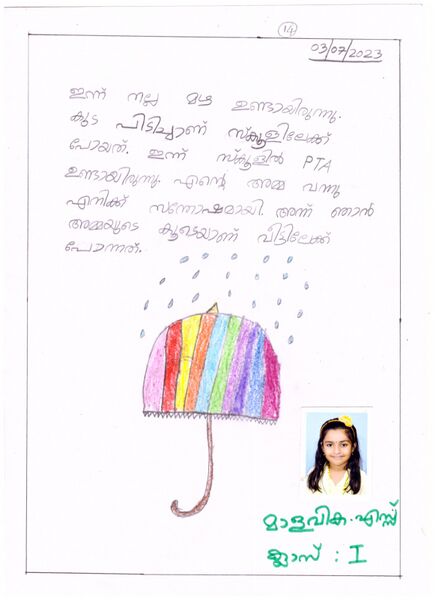 14
03/07/2023
ഇന്ന് നല്ല മഴ ഉണ്ടായിരുന്നു.
കുട പിടിച്ചാണ് സ്കൂളിലേക്ക്
പോയത്. ഇന്ന് സ്കൂളിൽ PTA
ഉണ്ടായിരുന്നു. എന്റെ അമ്മ വന്നു
എനിക്ക് സന്തോഷമായി. അന്ന് ഞാൻ
അമ്മയുടെ കൂടെയാണ് വീട്ടിലേക്ക്
പോന്നത്.
മാളവിക.എസ്സ്
ക്ലാസ് : I